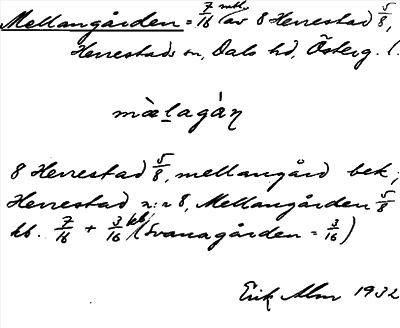 Mellangården = 7/16 mtl (av 8 Herrestad 5/8,
Herrestads sn, Dals hd, Österg. l.
mæ̀lagán
8 Herrestad 5/8, mellangård bek;
Herrestad n:r 8, Mellangården 5/8
kb. 7/16 + 3/16 kb/(Svanagården = 3/16)
Erik Alm 1932